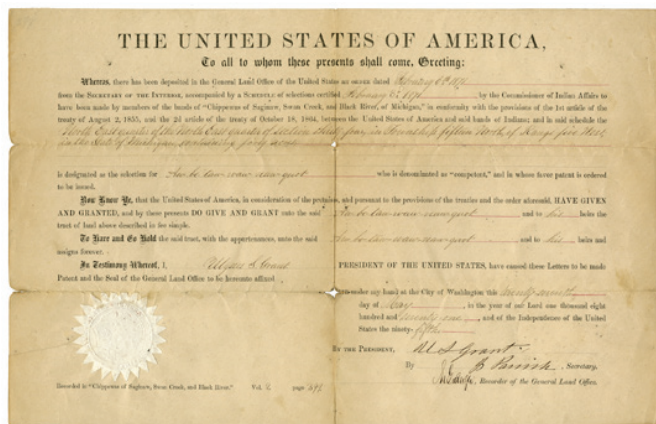 THE UNITED STATES OF AMERICA,
To all to whom these presents shall come, Greeting:
Whereas, there has been deposited in the General Land Office of the United States an ORDER dated February 6th 1871
from the SECRETARY OF THE INTERIOR, accompanied by a SCHEDULE of selections certified February 3d 1871, by the Commissioner of Indian Affairs to
have been made by members of the bands of "Chippewas of Saginaw, Swan Creek, and Black River, of Michigan," in conformity with the provisions of the 1st article of the
treaty of August 2, 1855, and the 2d article of the treaty of October 18, 1864, between the United States of America and said bands of Indians; and in said schedule the
North East quarter of the North East quarter of section thirty four in Township fifteen North of Range five West
in the State of Michigan, containing forty acres
is designated as the selection for who is denominated as "competent," and in whose favor patent is ordered
to be issued.
Now Know Ye, that the United States of America, in consideration of the premises, and pursuant to the provisions of the treaties and the order aforesaid, HAVE GIVEN
AND GRANTED, and by these presents DO GIVE AND GRANT unto the said and to his heirs the
tract of land above described in fee simple.
To Have and To Hold the said tract, with the appurtenances, unto the said and to his heirs and
assigns forever.
In Testimony Whereof, I, Ulysses S. Grant PRESIDENT OF THE UNITED STATES, have caused these Letters to be made
Patent and the Seal of the General Land Office to be hereunto affixed.
under my hand at the City of Washington this twenty ninth
day of May, in the year of our Lord one thousand eight
hundred and seventy one, and of the Independence of the United
States the ninety-fifth
BY THE PRESIDENT, U. S. Grant
By Parrish, Secretary.
Recorder of the General Land Office.
Recorded in "Chippewas of Saginaw, Swan Creek, and Black River." Vol. 2 page